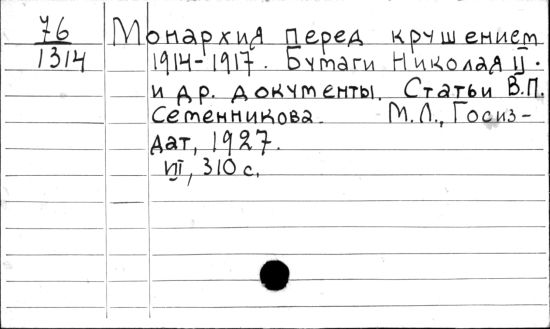 76 Монархия перед крушением
1314 1914-1917. Бумаги Николая II.
и др. документы. Статьи В.П.
Семенникова. М.Л., Госиз-
дат, 1927.
VII, 310 с.